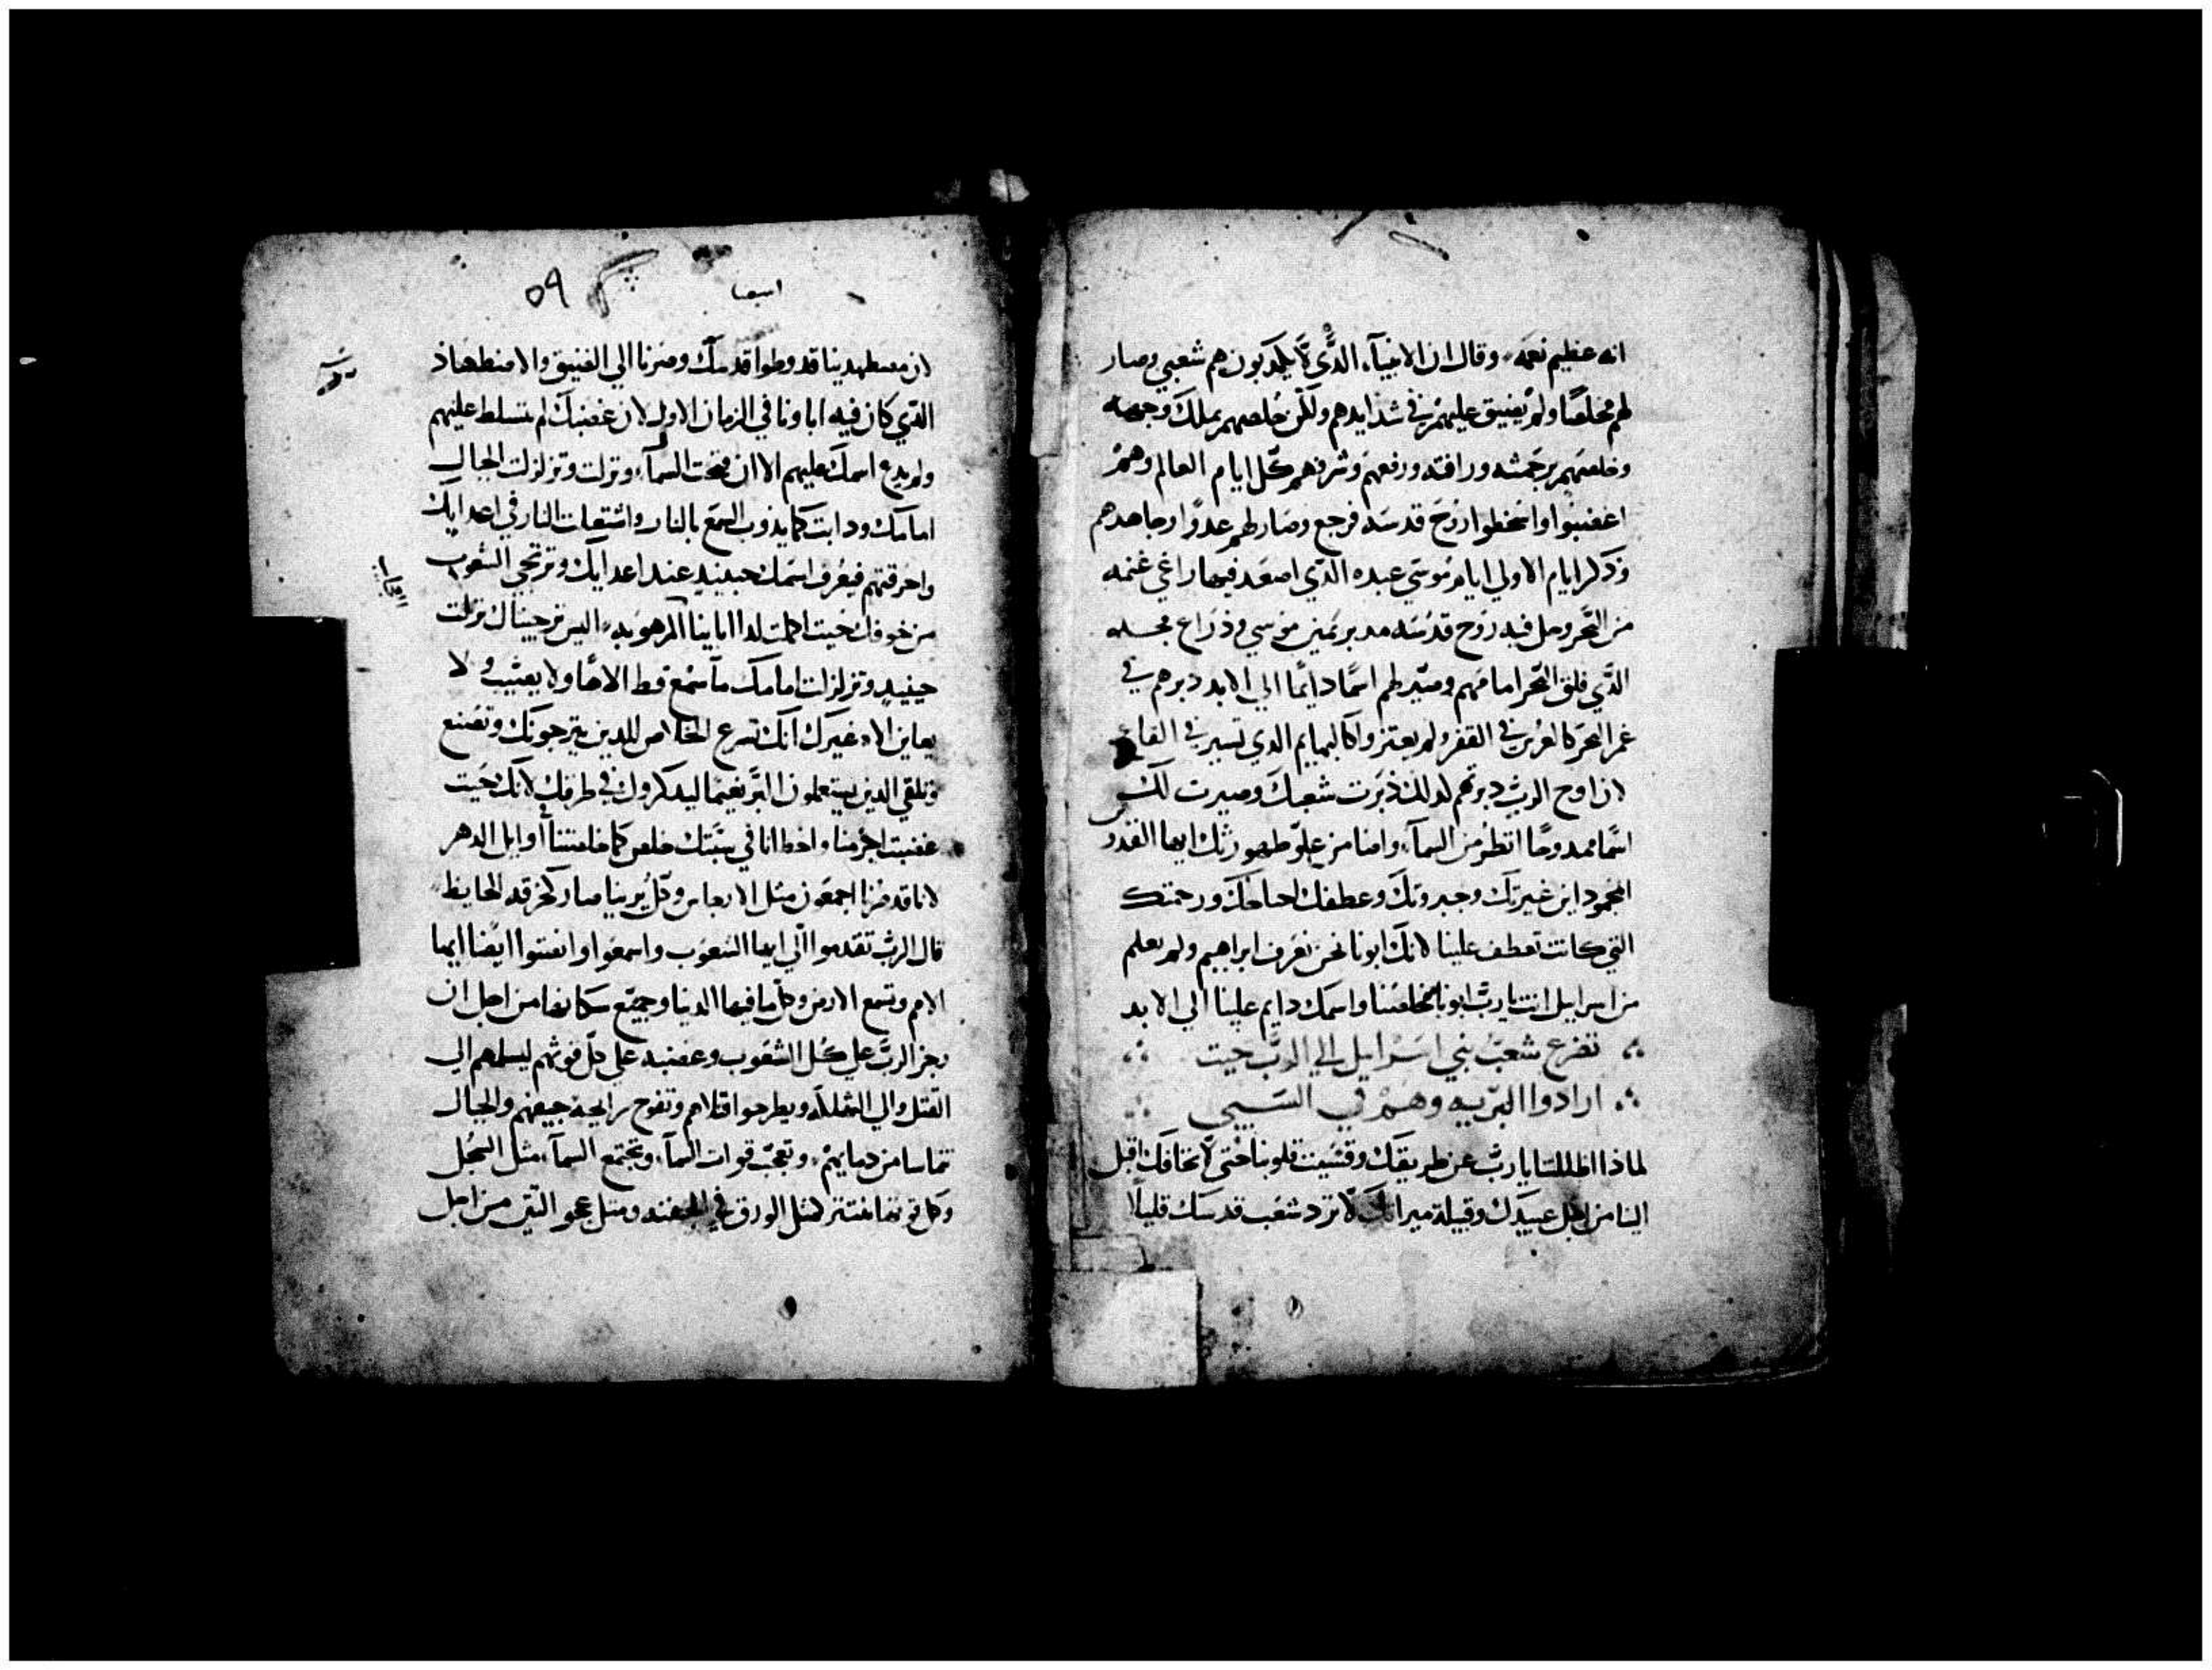 انه عظيم نعمه وقال ان الانبيآء الذَّي لَّا يكدبون هم شعبي وصار
لهم مخلصًا ولم يضيق عليهم في شدايدهم ولكن خلصهم بملك وجهه
وخلصهم برحمته ورافته ورفعهم وشرفهم كل ايام العالم وهم
اغضبوا واسخطوا روح قدسه فرجع وصار لهم عدوًا وجاهدهم
وذكر ايام الاولي ايام موسي عبده الذي اصعد فيها راعي غنمه
من البحر وحل فيه روح قدسه مدبر يمين موسي وذراع مجده
الذي فلق البحر امامهم وصير لهم اسمًا دايمًا الي الابد دبرهم في
غمر البحر كالفرس في القفر ولم يعتزوا كالبهايم الدي تسير في القاع
لان روح الرب دبرتهم لدلك دبرت شعبك وصيرت لك
اسمًا ممدوحًا انظر من السمآء وامنا من علو طهورتك ايها القدوس
المجمود اين غيرتك وجبروتك وعطفك احناحك ورحمتك
التي كانت تعطف علينا لانك ابونا نحن نعرف ابراهيم ولم نعلم
من اسراييل انت يارب ابونا مخلصنا واسمك دايم علينا الي الابد
تضرع شعب بني اسراييل الي الرب حيت
ارادوا البريه وهم في السبي
لماذا اظللتنا يارب عن طريقك وقسيت قلوبنا حتي لا نخافك اقبل
الينا من اجل عبيدك وقبيلة ميراتك لا ترد شعب قدسك قليلًا
اسعيا
٥٩
لان مضطهدينا قد وطوا قدسك وصرنا الي الضيق والاضطهاد
الذي كان فيه اباونا في الزمان الاول لان غضبك لم يتسلط عليهم
ولم يدع اسمك عليهم الا ان فتحت السمآء ونزلت وتزلزلت الجبال
امامك ودابت كما يذوب الشمع بالنار واشتعلت النار في اعدايك
واحرقتهم فيعرف اسمك حينيد عند اعدايك وترتجي الشعوب
من خوفك حيت اكملت لدا ابايينا المرهوبه اليس ترجيناك نزلت
حينيد وتزلزلت امامك ما سمع قط الاهًا ولا يعتيب ولا
يعاين الاه غيرك انك تسرع الخلاص للدين يترجونك وتصنع
وتلقي الدين يستعلمون البر نعيمًا ليدكروك في طرقك لانك حيت
غضبت اجرمنا واخطانا في سبتك خلص كما خلصتنا اوايل الدهر
لانا قد صرنا اجمعون متل الارجاس وكل برينا صار كخرقه الحايظ
قال الرب تقدموا الي ايها الشعوب واسمعوا وانصتوا ايضا ايها
الامم وتسمع الارض وكل ما فيها الدنيا وجميع سكانها من اجل ان
رجز الرب علي كل الشعوب وغضبه علي كل قوتهم ليسلمهم الي
القتل والي الهلاك ويطرحوا قتلاهم وتفوح رايحة جيفهم والجبال
تماسا من دمايهم وتعجب قوات السمآء وتجتمع السمآء متل السجل
وكل قوتها تنتتر كمتل الورق في الجفنه ومتل عجو التين من اجل